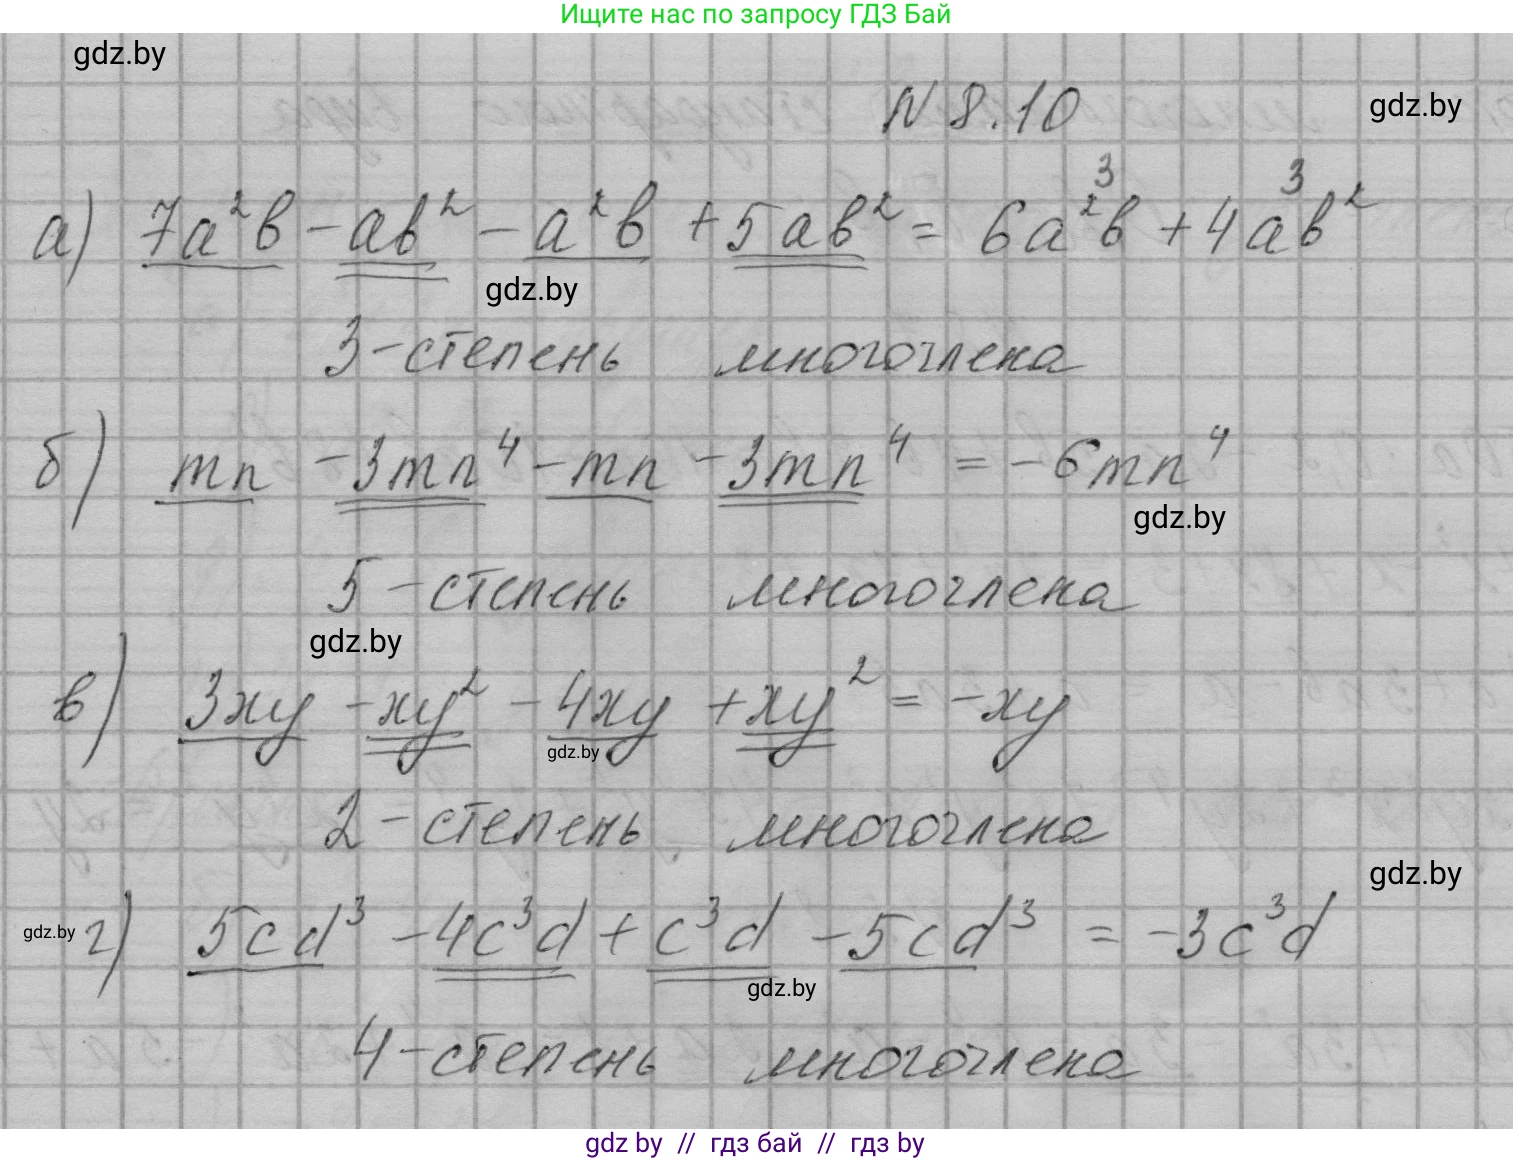 Ищите нас по запросу ГДЗ Бай
gdz.by
N 8.10
gdz.by
а) 7a²b - ab² - a²b + 5ab² = 6a²b³ + 4ab²³
gdz.by
3 - степень многочлена
б) mn - 3mn⁴ - mn - 3mn⁴ = -6mn⁴
gdz.by
5 - степень многочлена
gdz.by
в) 3xy - xy² - 4xy + xy² = -xy
gdz.by
2 - степень многочлена
gdz.by
gdz.by
г) 5cd³ - 4c³d + c³d - 5cd³ = -3c³d
gdz.by
4 - степень многочлена
gdz by // гдз бай // гдз by